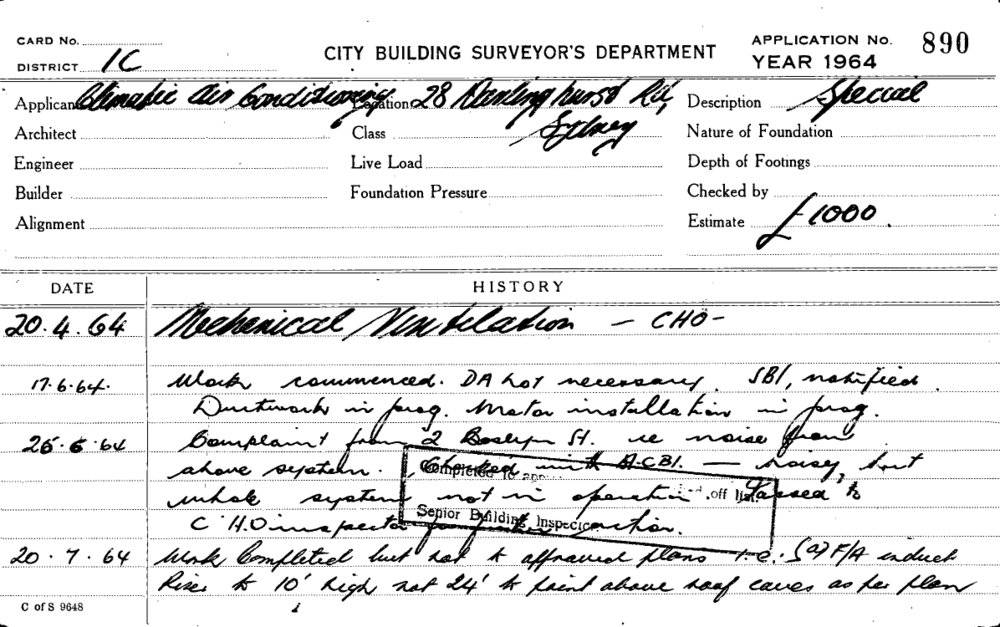 CARD No.
DISTRICT 1C
CITY BUILDING SURVEYOR'S DEPARTMENT
APPLICATION No. 890
YEAR 1964
Applicant Climatic Air Conditioning Location 28 Darlinghurst Rd, Description Special
Architect Class Sydney Nature of Foundation
Engineer Live Load Depth of Footings
Builder Foundation Pressure Checked by
Alignment Estimate £1000.
DATE HISTORY
20.4.64 Mechanical Ventilation - CHO -
17.6.64. Work commenced. DA not necessary. SBI, notified.
Ductwork in prog. Motor installation in prog.
26.6.64 Complaint from 2 Roslyn St. re noise from
above system. Checked with A.C.B.I. — noisy, but
whole system not in operation. Passed to
C.H.O inspector for action.
Completed to off list
Senior Building Inspector
20.7.64 Work Completed but not to approved plans i.e. (a) F/A induct
Rises to 10' high not 24' to point above roof eaves as per plan
C of S 9648